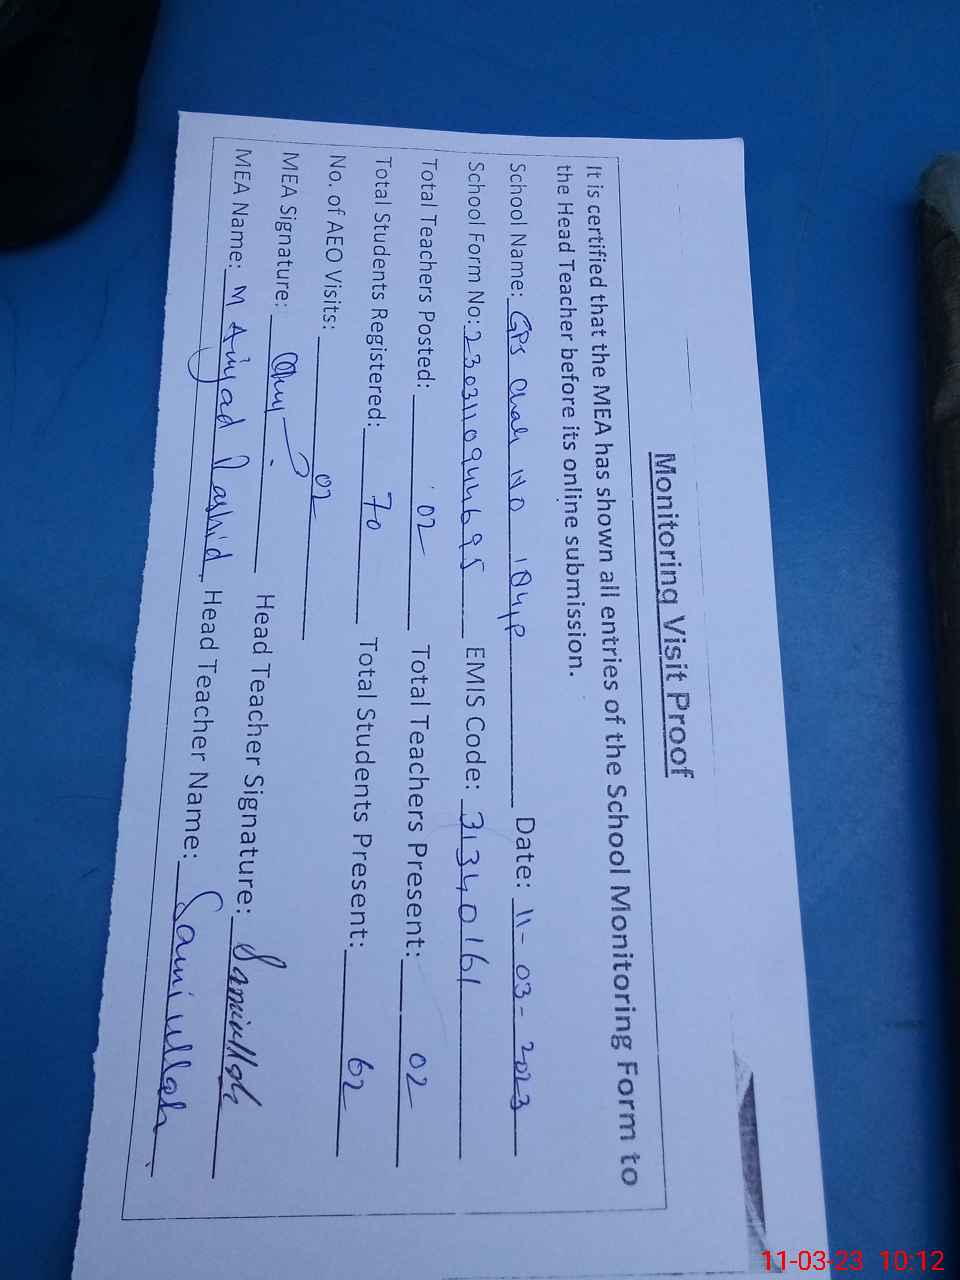 Monitoring Visit Proof
It is certified that the MEA has shown all entries of the School Monitoring Form to
the Head Teacher before its online submission.
School Name: GPS Chak No 184/P Date: 11-03-2023
School Form No: 2303110944695 EMIS Code: 31340161
Total Teachers Posted: 02 Total Teachers Present: 02
Total Students Registered: 70 Total Students Present: 62
No. of AEO Visits: 02
MEA Signature: Head Teacher Signature: Samiullah
MEA Name: M Amjad Rashid Head Teacher Name: Samiullah
11-03-23 10:12